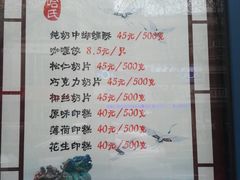 哈氏
纯奶中蝴蝶酥 45元/500克
咖喱饺 8.5元/只
松仁奶片 45元/500克
巧克力奶片 45元/500克
椰丝奶片 45元/500克
原味印糕 40元/500克
薄荷印糕 40元/500克
花生印糕 40元/500克